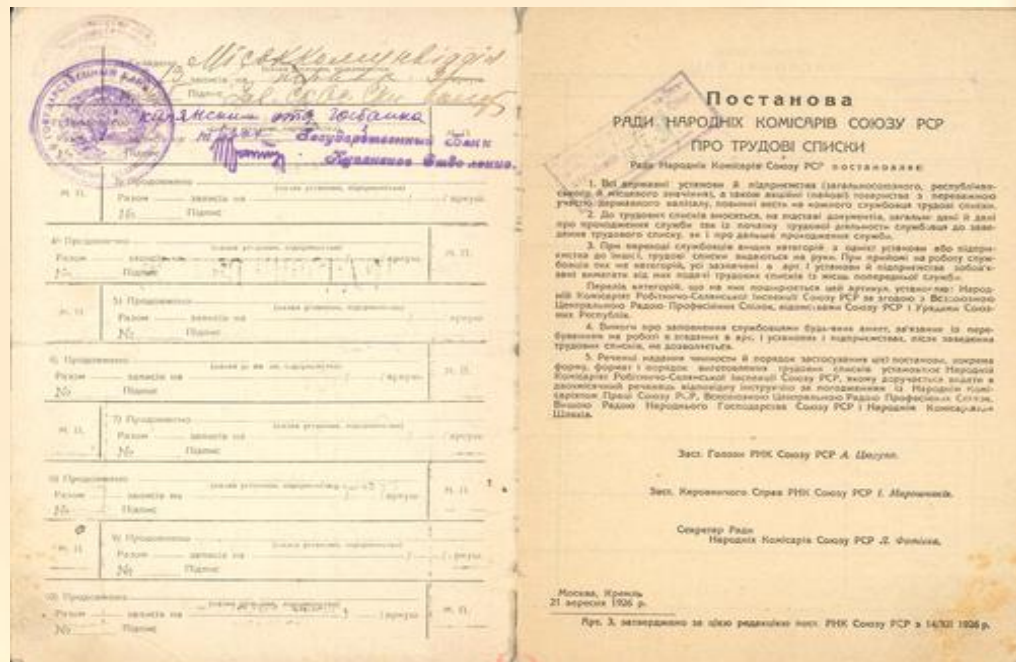 Складено Міськкомунвідділ
13 записів на
Підпис
Купянским отд. Госбанка
Государственный Банк
Купянское Отделение.
3) Продовжено
М. П. Разом записів на аркуш
№ Підпис
4) Продовжено
Разом М. П.
№ Підпис
5) Продовжено
М. П. Разом записів на аркуш
№ Підпис
6) Продовжено
Разом записів на аркуш М. П.
№ Підпис
7) Продовжено
М. П. Разом записів на аркуш
№ Підпис
8) Продовжено
Разом записів на аркуш М. П.
№ Підпис
9) Продовжено
М. П. Разом записів на аркуш
№ Підпис
10) Продовжено
Разом аркуш М. П.
№ Підпис
Постанова
РАДИ НАРОДНІХ КОМІСАРІВ СОЮЗУ РСР
ПРО ТРУДОВІ СПИСКИ
Рада Народніх Комісарів Союзу РСР постановляє:
1. Всі державні установи й підприємства (загальносоюзного, республікан-
ського й місцевого значіння), а також акційні (пайові) товариства з переважною
участю державного капіталу, повинні вести на кожного службовця трудові списки.
2. До трудових списків вносяться, на підставі документів, загальні дані й дані
про проходження служби так із початку трудової діяльности службовця до заве-
дення трудового списку, як і про дальше проходження служби.
3. При переході службовців вищих категорій з одної установи або підпри-
ємства до іншої, трудові списки видаються на руки. При прийомі на роботу служ-
бовців тих же категорій, усі зазначені в арт. 1 установи й підприємства зобов'я-
зані вимагати від них подачі трудових списків із місць попередньої служби.
Перелік категорій, що на них поширюється цей артикул, установлює Народ-
ній Комісаріят Робітничо-Селянської Інспекції Союзу РСР за згодою з Всесоюзною
Центральною Радою Професійних Спілок, відомствами Союзу РСР і Урядами Союз-
них Республік.
4. Вимоги про заповнення службовцями будь-яких анкет, зв'язаних із пере-
буванням на роботі в згаданих в арт. 1 установах і підприємствах, після заведення
трудових списків, не дозволяється.
5. Реченці надання чинности й порядок застосування цієї постанови, зокрема
форму, формат і порядок виготовлення трудових списків установлює Народній
Комісаріят Робітничо-Селянської Інспекції Союзу РСР, якому доручається видати в
двохмісячний речінець відповідну інструкцію за погодженням із Народнім Комі-
саріятом Праці Союзу РСР, Всесоюзною Центральною Радою Професійних Спілок,
Вищою Радою Народнього Господарства Союзу РСР і Народнім Комісаріятом
Шляхів.
Заст. Голови РНК Союзу РСР А. Цюрупа.
Заст. Керовничого Справ РНК Союзу РСР І. Мирошников.
Секретар Ради
Народніх Комісарів Союзу РСР Л. Фотієва.
Москва, Кремль
21 вересня 1926 р.
Арт. 3, затверджено за цією редакцією пост. РНК Союзу РСР з 14/XII 1926 р.